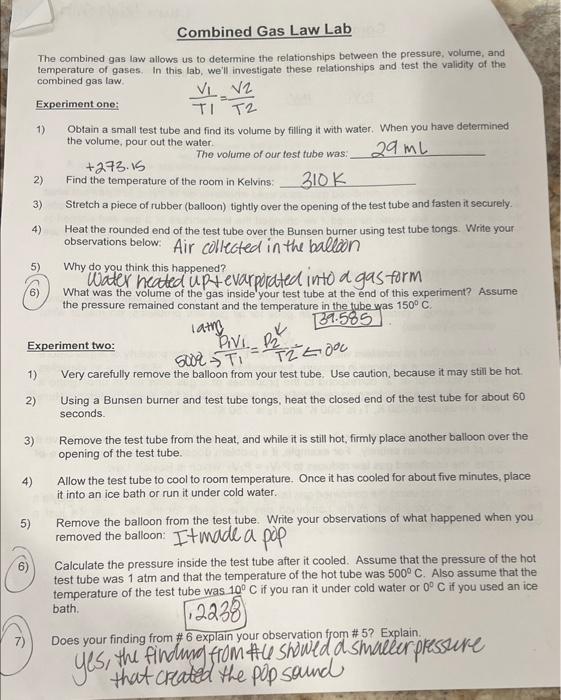 Combined Gas Law Lab
The combined gas law allows us to determine the relationships between the pressure, volume, and
temperature of gases. In this lab, we'll investigate these relationships and test the validity of the
combined gas law.
V1/T1 = V2/T2
Experiment one:
1) Obtain a small test tube and find its volume by filling it with water. When you have determined
the volume, pour out the water.
The volume of our test tube was: 29 mL
+273.15
2) Find the temperature of the room in Kelvins: 310 K
3) Stretch a piece of rubber (balloon) tightly over the opening of the test tube and fasten it securely.
4) Heat the rounded end of the test tube over the Bunsen burner using test tube tongs. Write your
observations below: Air collected in the balloon
5) Why do you think this happened?
Water heated up + evarporated into a gas form
6) What was the volume of the gas inside your test tube at the end of this experiment? Assume
the pressure remained constant and the temperature in the tube was 150º C.
39.585
1 atm
Experiment two:
500c → P1V1/T1 = P2/T2 ← 0ºc
1) Very carefully remove the balloon from your test tube. Use caution, because it may still be hot.
2) Using a Bunsen burner and test tube tongs, heat the closed end of the test tube for about 60
seconds.
3) Remove the test tube from the heat, and while it is still hot, firmly place another balloon over the
opening of the test tube.
4) Allow the test tube to cool to room temperature. Once it has cooled for about five minutes, place
it into an ice bath or run it under cold water.
5) Remove the balloon from the test tube. Write your observations of what happened when you
removed the balloon: It made a pop
6) Calculate the pressure inside the test tube after it cooled. Assume that the pressure of the hot
test tube was 1 atm and that the temperature of the hot tube was 500º C. Also assume that the
temperature of the test tube was 10º C if you ran it under cold water or 0º C if you used an ice
bath.
.2238
7) Does your finding from # 6 explain your observation from # 5? Explain.
yes, the finding from #6 showed a smaller pressure
that created the pop sound